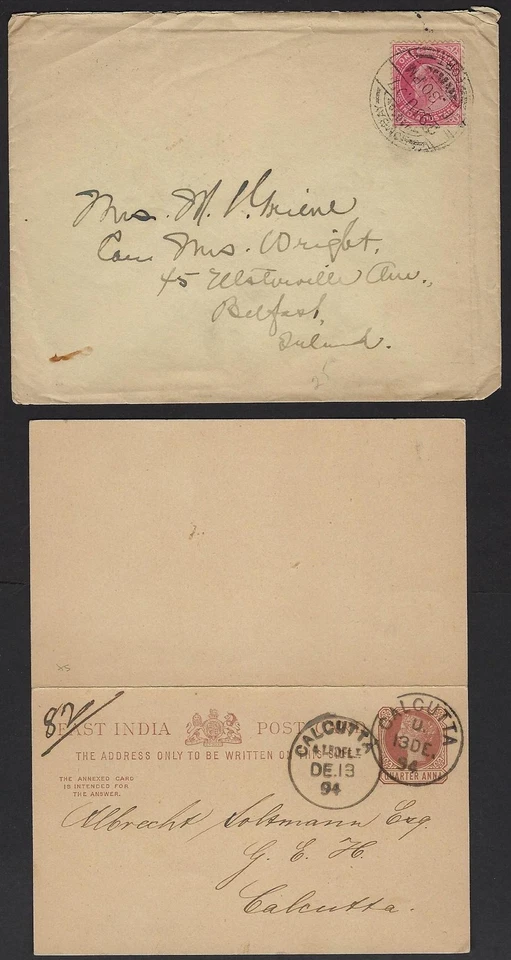 Mrs. M. V. Griene
Care Mrs. Wright,
45 Ulsterville Ave.,
Belfast,
Ireland.
25
X5
82/
EAST INDIA POST
THE ADDRESS ONLY TO BE WRITTEN ON THIS SIDE
THE ANNEXED CARD
IS INTENDED FOR
THE ANSWER.
CALCUTTA
DE.13
94
CALCUTTA
U.
13DE.
94
QUARTER ANNA
Albrecht Soltmann Esq.
G. E. H.
Calcutta.